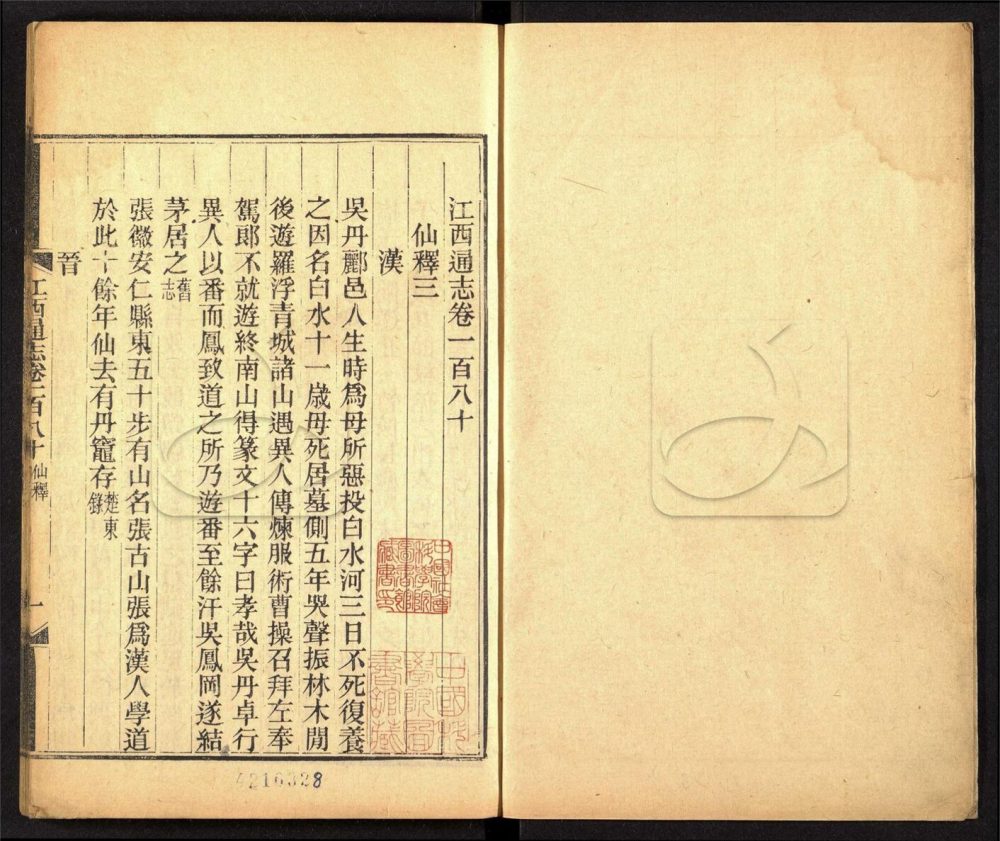 江西通志卷一百八十
仙釋三
漢
吳丹酈邑人生時爲母所惡投白水河三日不死復養
之因名白水十一歲母死居墓側五年哭聲振林木閒
後遊羅浮青城諸山遇異人傳煉服術曹操召拜左奉
駕郎不就遊終南山得篆文十六字曰孝哉吳丹卓行
異人以番而鳳致道之所乃遊番至餘汗吳鳳岡遂結
茅居之舊志
張徽安仁縣東五十步有山名張古山張爲漢人學道
於此十餘年仙去有丹竈存楚東錄
晉
江西通志卷一百八十 仙釋 一
中國社會科學院圖書館藏書印
中國科學院圖書館藏
4216328